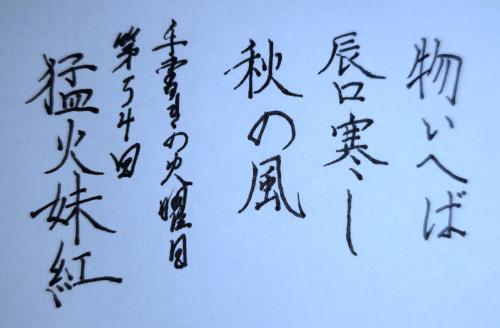 物いへば
辰口寒し
秋の風
手書きの火曜日
第54回
猛火妹紅